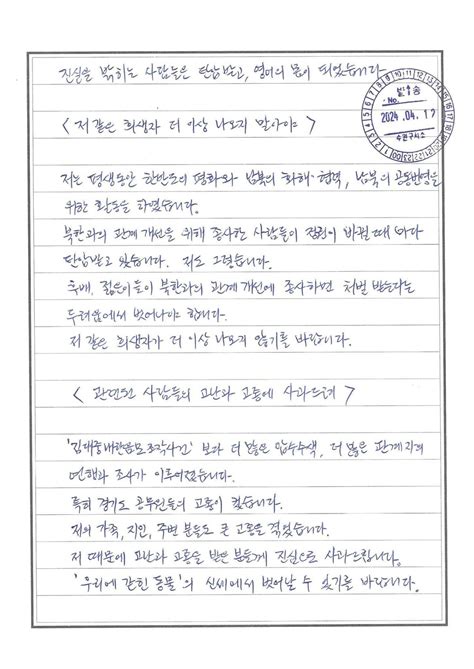 진실을 밝히는 사람들은 탄압받고, 영어의 몸이 되었습니다
발송
No.
2024.04.17
수원구치소
< 저 같은 희생자 더 이상 나오지 말아야 >
저는 평생동안 한반도의 평화와 남북의 화해·협력, 남북의 공동번영을
위한 활동을 하였습니다.
북한과의 관계 개선을 위해 종사한 사람들이 정권이 바뀔 때마다
탄압받고 있습니다. 저도 그렇습니다.
후배, 젊은이들이 북한과의 관계 개선에 종사하면 처벌 받는다는
두려움에서 벗어나야 합니다.
저 같은 희생자가 더 이상 나오지 않기를 바랍니다.
< 관련된 사람들의 고난과 고통에 사과드려 >
'김대중내란음모조작사건' 보다 더 많은 압수수색, 더 많은 관계자의
연행과 조사가 이루어졌습니다.
특히 경기도 공무원들의 고통이 컸습니다.
저의 가족, 지인, 주변 분들도 큰 고통을 겪었습니다.
저 때문에 고난과 고통을 받은 분들께 진심으로 사과드립니다.
'우리에 갇힌 동물'의 신세에서 벗어날 수 있기를 바랍니다.